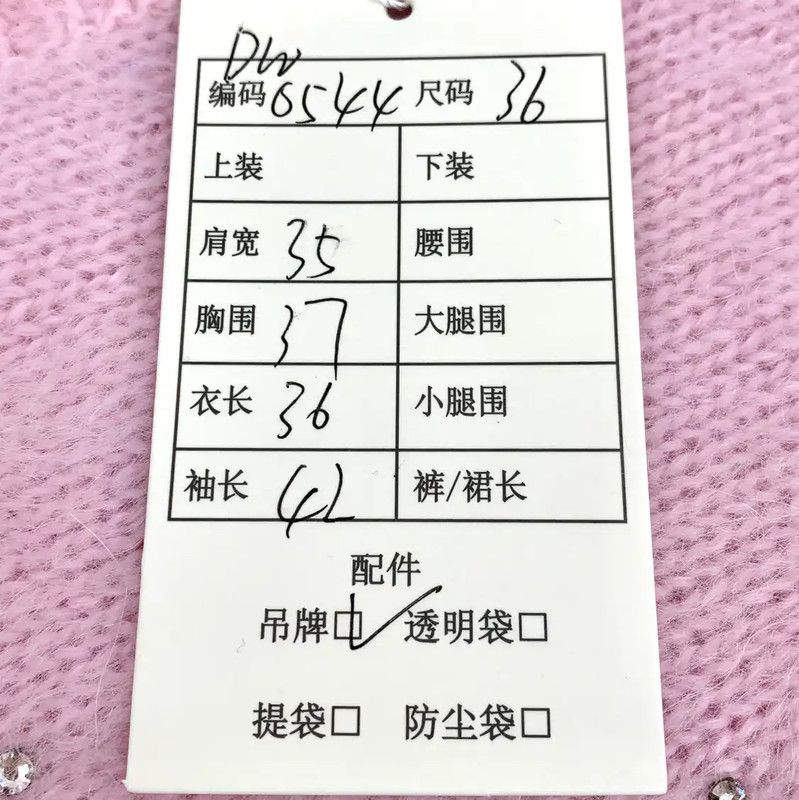 DW
编码 0544 尺码 36
上装 下装
肩宽 35 腰围
胸围 37 大腿围
衣长 36 小腿围
袖长 42 裤/裙长
配件
吊牌☑ 透明袋□
提袋□ 防尘袋□